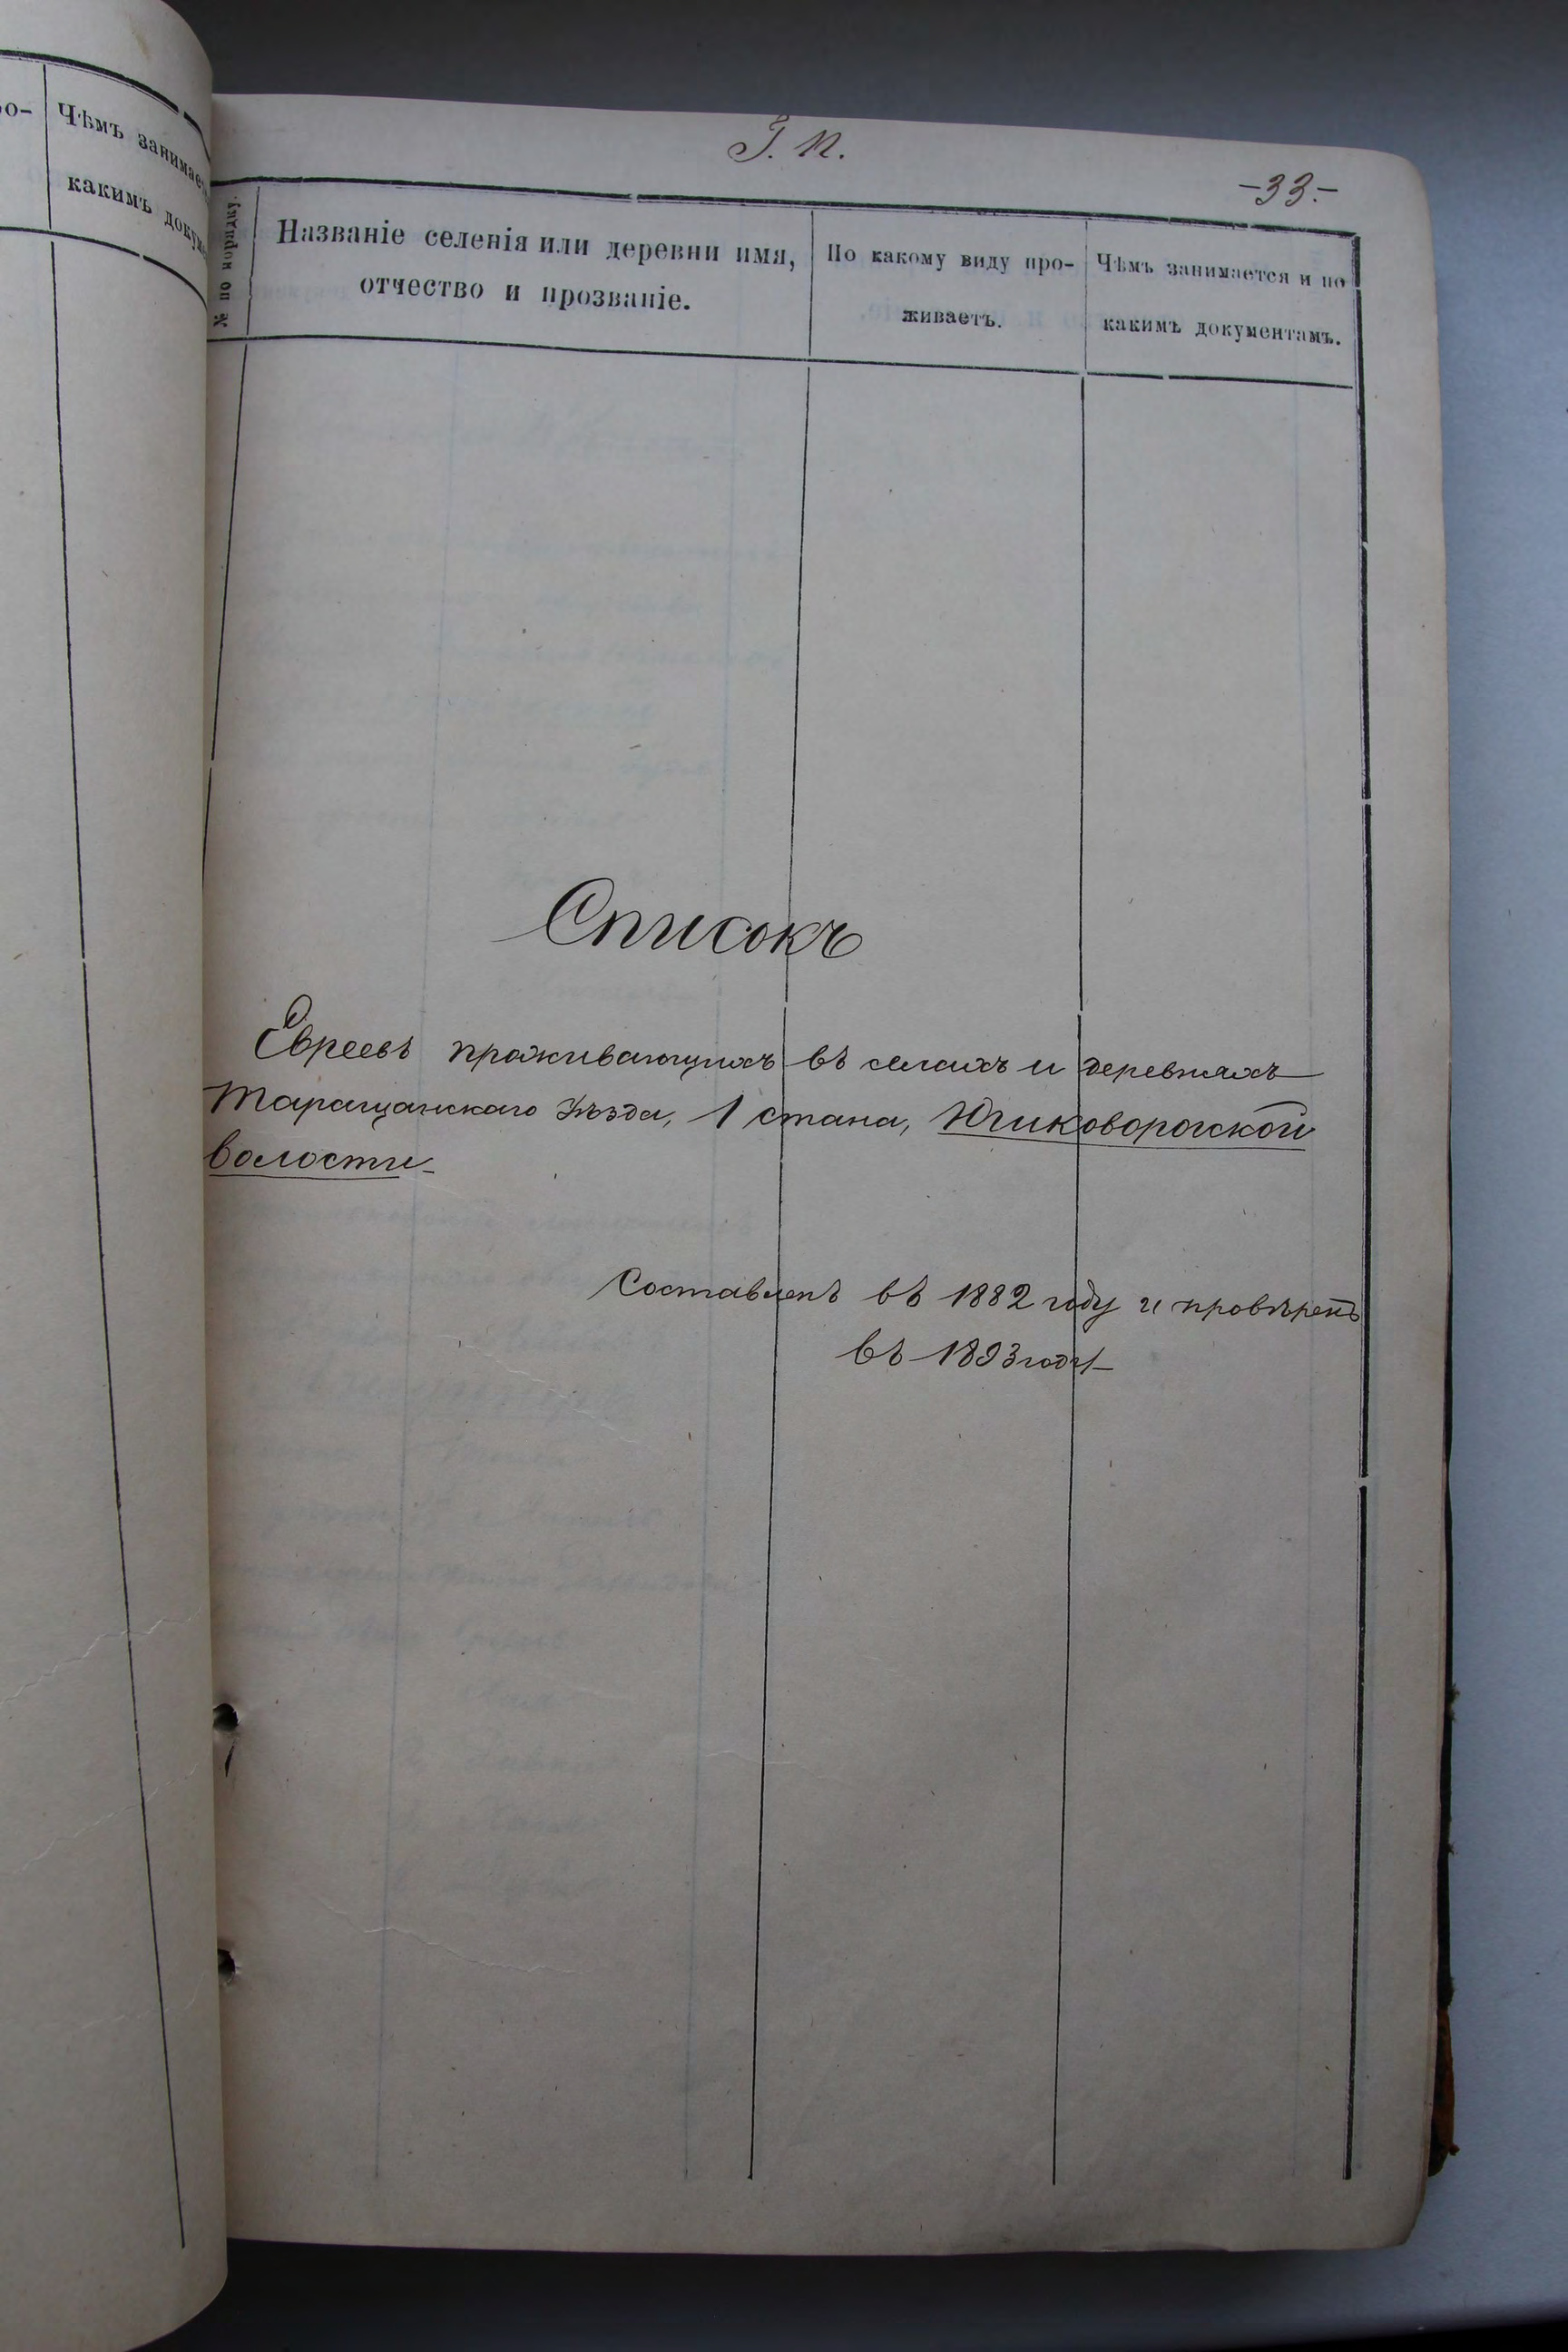 ро-
Чѣмъ занимает
какимъ докум
Т. П.
-33.-
№ по порядку.
Названіе селенія или деревни имя,
отчество и прозваніе.
По какому виду про-
живаетъ.
Чѣмъ занимается и по
какимъ документамъ.
Списокъ
Евреевъ проживающихъ въ селахъ и деревняхъ
Таращанскаго Уѣзда, 1 стана,
волости
Составленъ въ 1882 году и провѣренъ
въ 1893 году